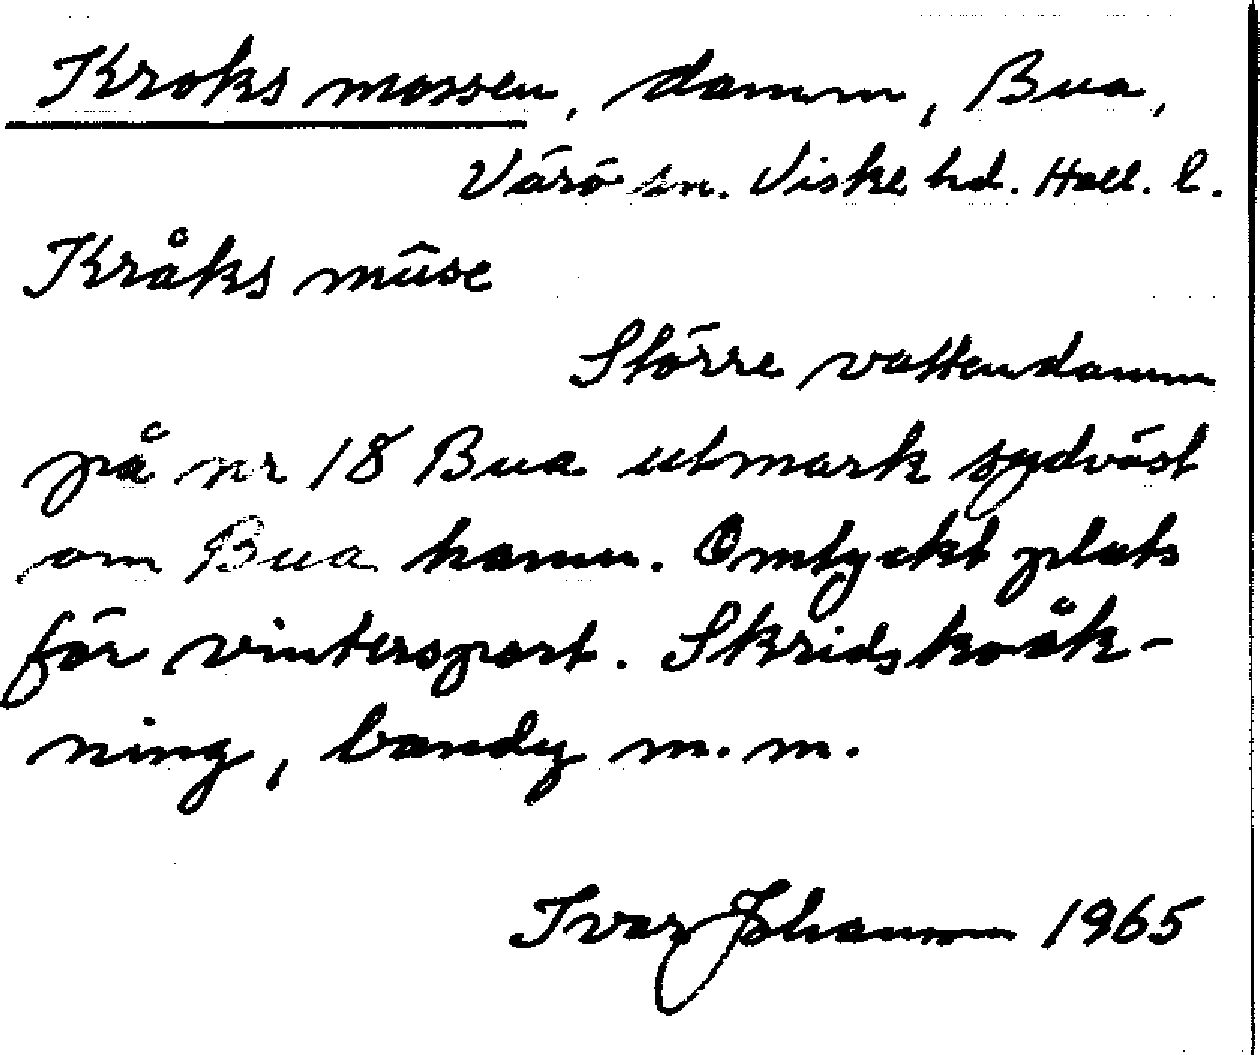 Kroks mossen, damm, Bua,
Värö sn. Viske hd. Hall. l.
Kråks mûse
Större vattendamm
på nr 18 Bua utmark sydväst
om Bua hamn. Omtyckt plats
för vintersport. Skridskoåk-
ning, bandy m.m.
Ivar Johansson 1965